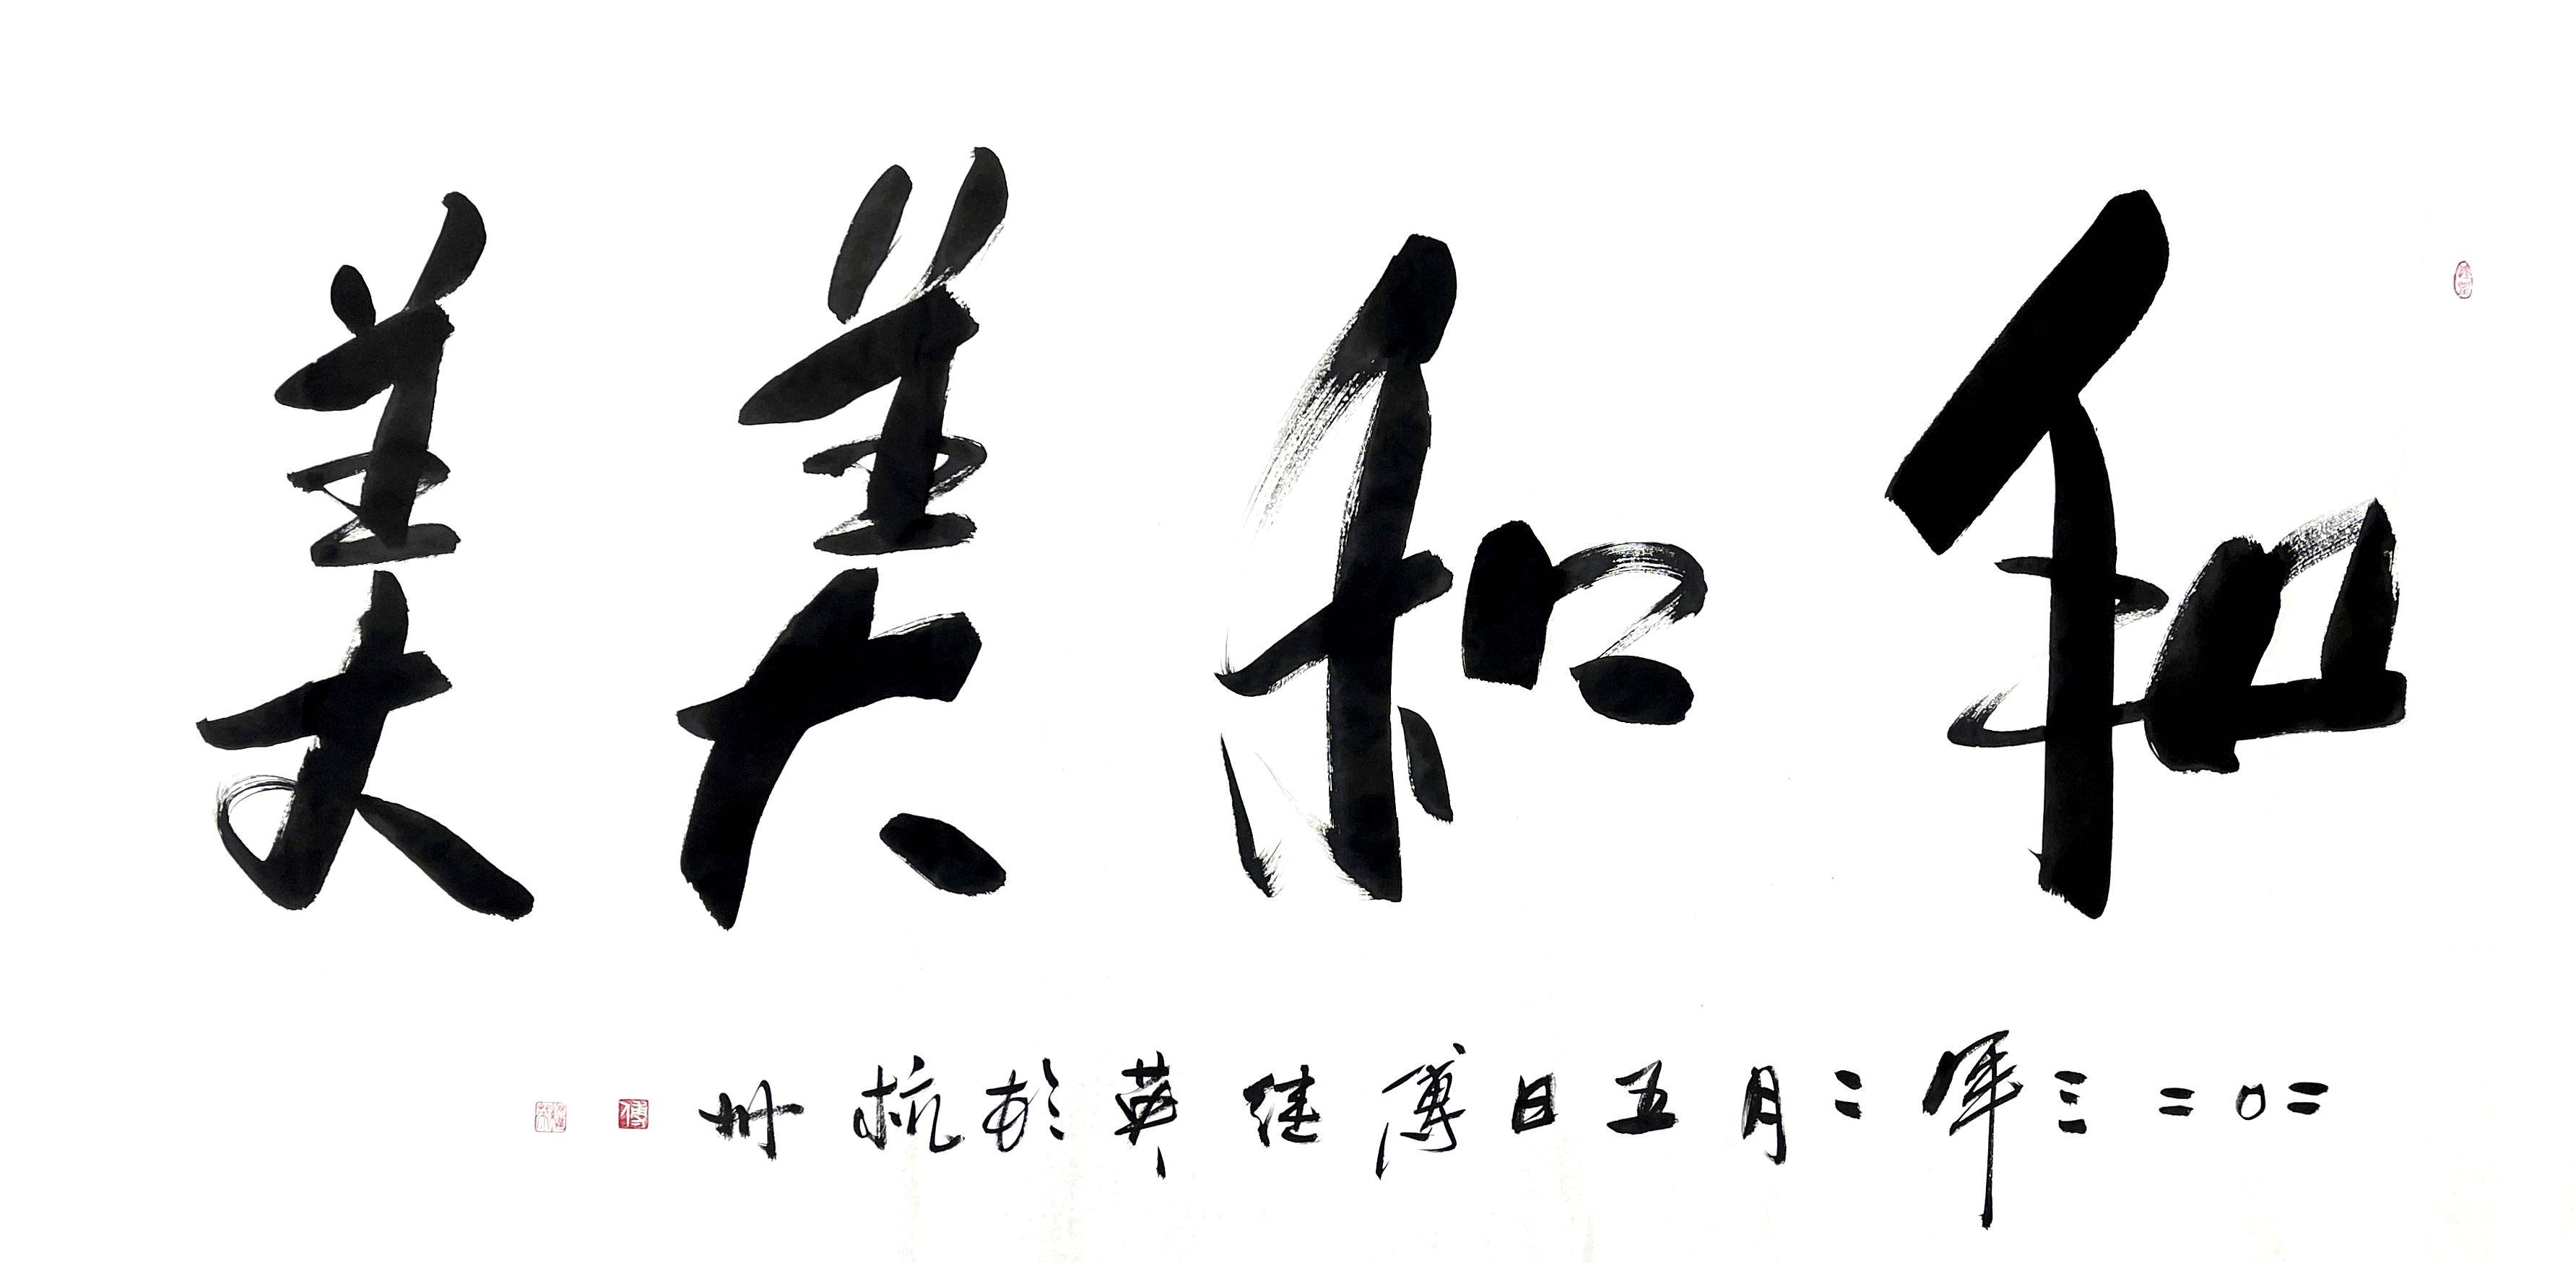 和和美美
二〇二三年二月五日傅继英於杭州
傅